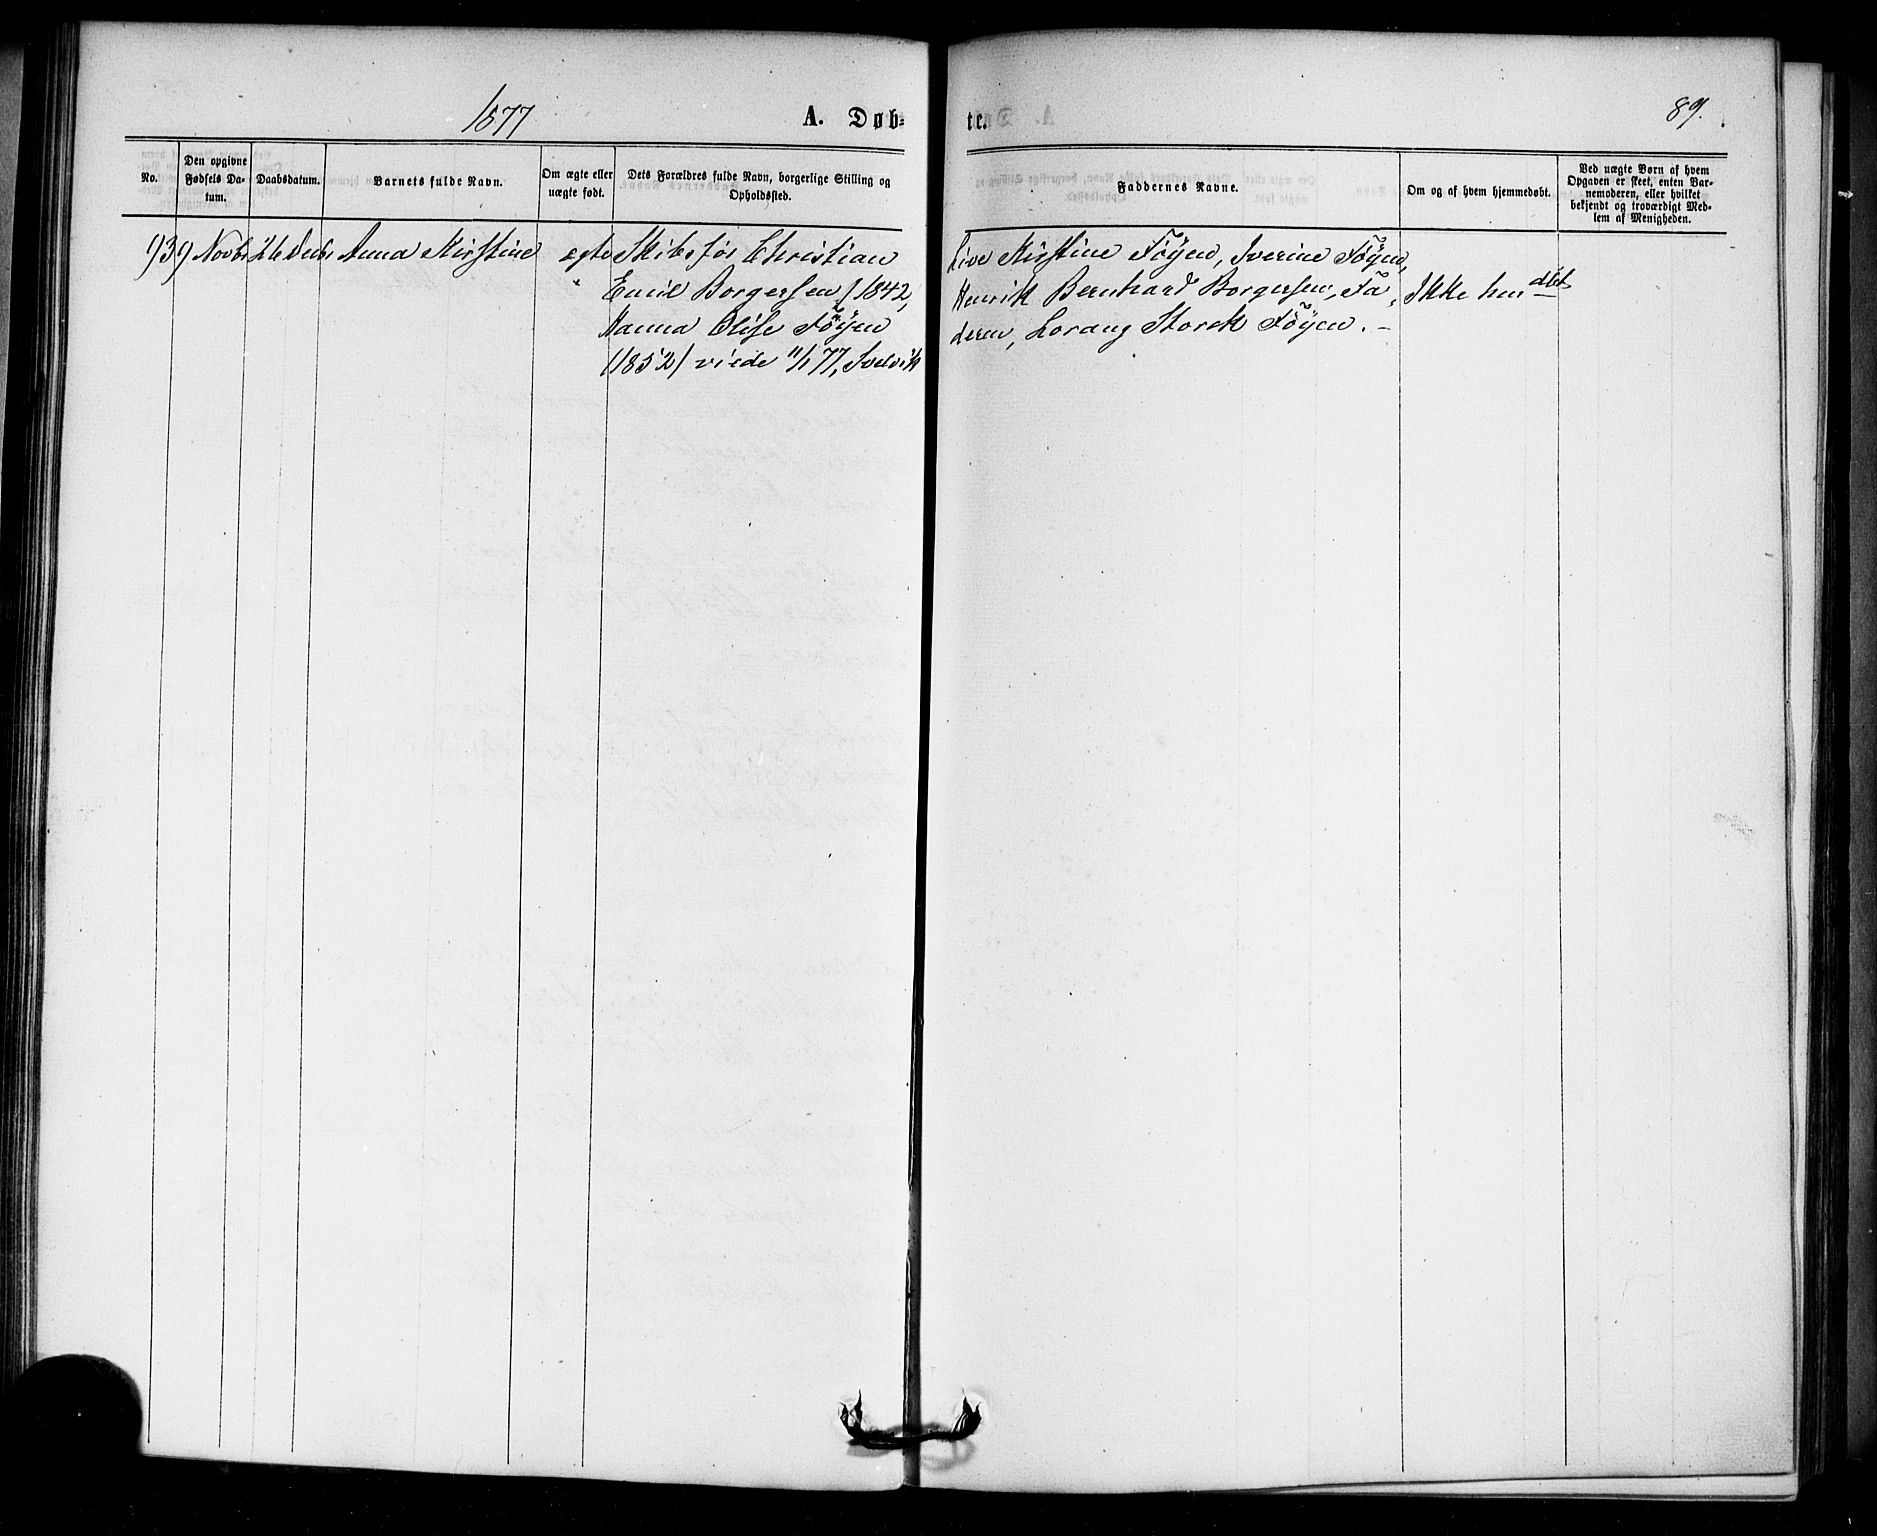 1877
A. Døb-
te.
89.
No.
Den opgivne
Fødsels Da-
tum.
Daabsdatum.
Barnets fulde Navn.
Om ægte eller
uægte født.
Dets Forældres fulde Navn, borgerlige Stilling og
Opholdssted.
Faddernes Navne.
Om og af hvem hjemmedøbt.
Ved uægte Børn af hvem
Opgaven er skeet, enten Bar-
nemoderen, eller hvilket
bekjendt og troværdigt Med-
lem af Menigheden.
93 9 Novbr 26 Decbr Anna Kirstine ægte Skibsfør Christian
Emil Borgersen (1842,
Hanna Elise Föyen
(1852) viede 11/1 77, Svelvik
Live Kirstine Föyen, Iverine Föyen,
Henrik Bernhard Borgersen, Fa-
deren, Lorang Storck Föyen. –
Ikke hmdbt